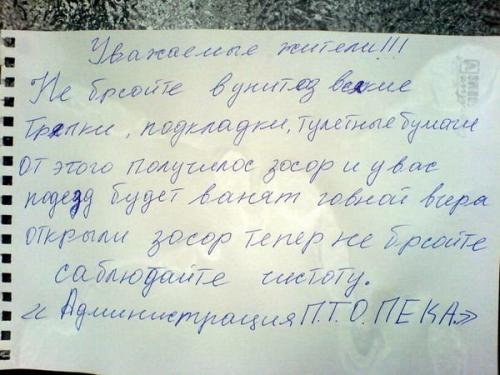 Уважаемые жители!!!
Не брсойте в унитоз всякие
Трепки, подкладки, тулетные бумаги
От этого получилос зосор и у вас
подезд будет ванят говной вчера
открыли зосор тепер не брсойте
саблюдайте чистоту.
«Администрация П.Т.О. ПЕКА.»